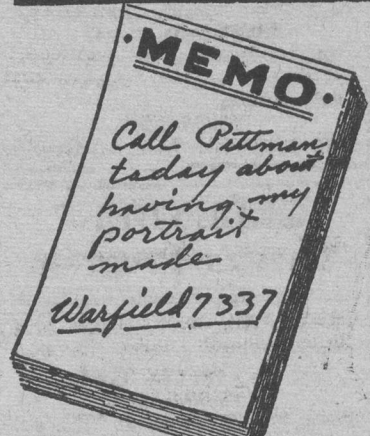 ·MEMO·
Call Pittman
today about
having my
portrait
made
Warfield 7337